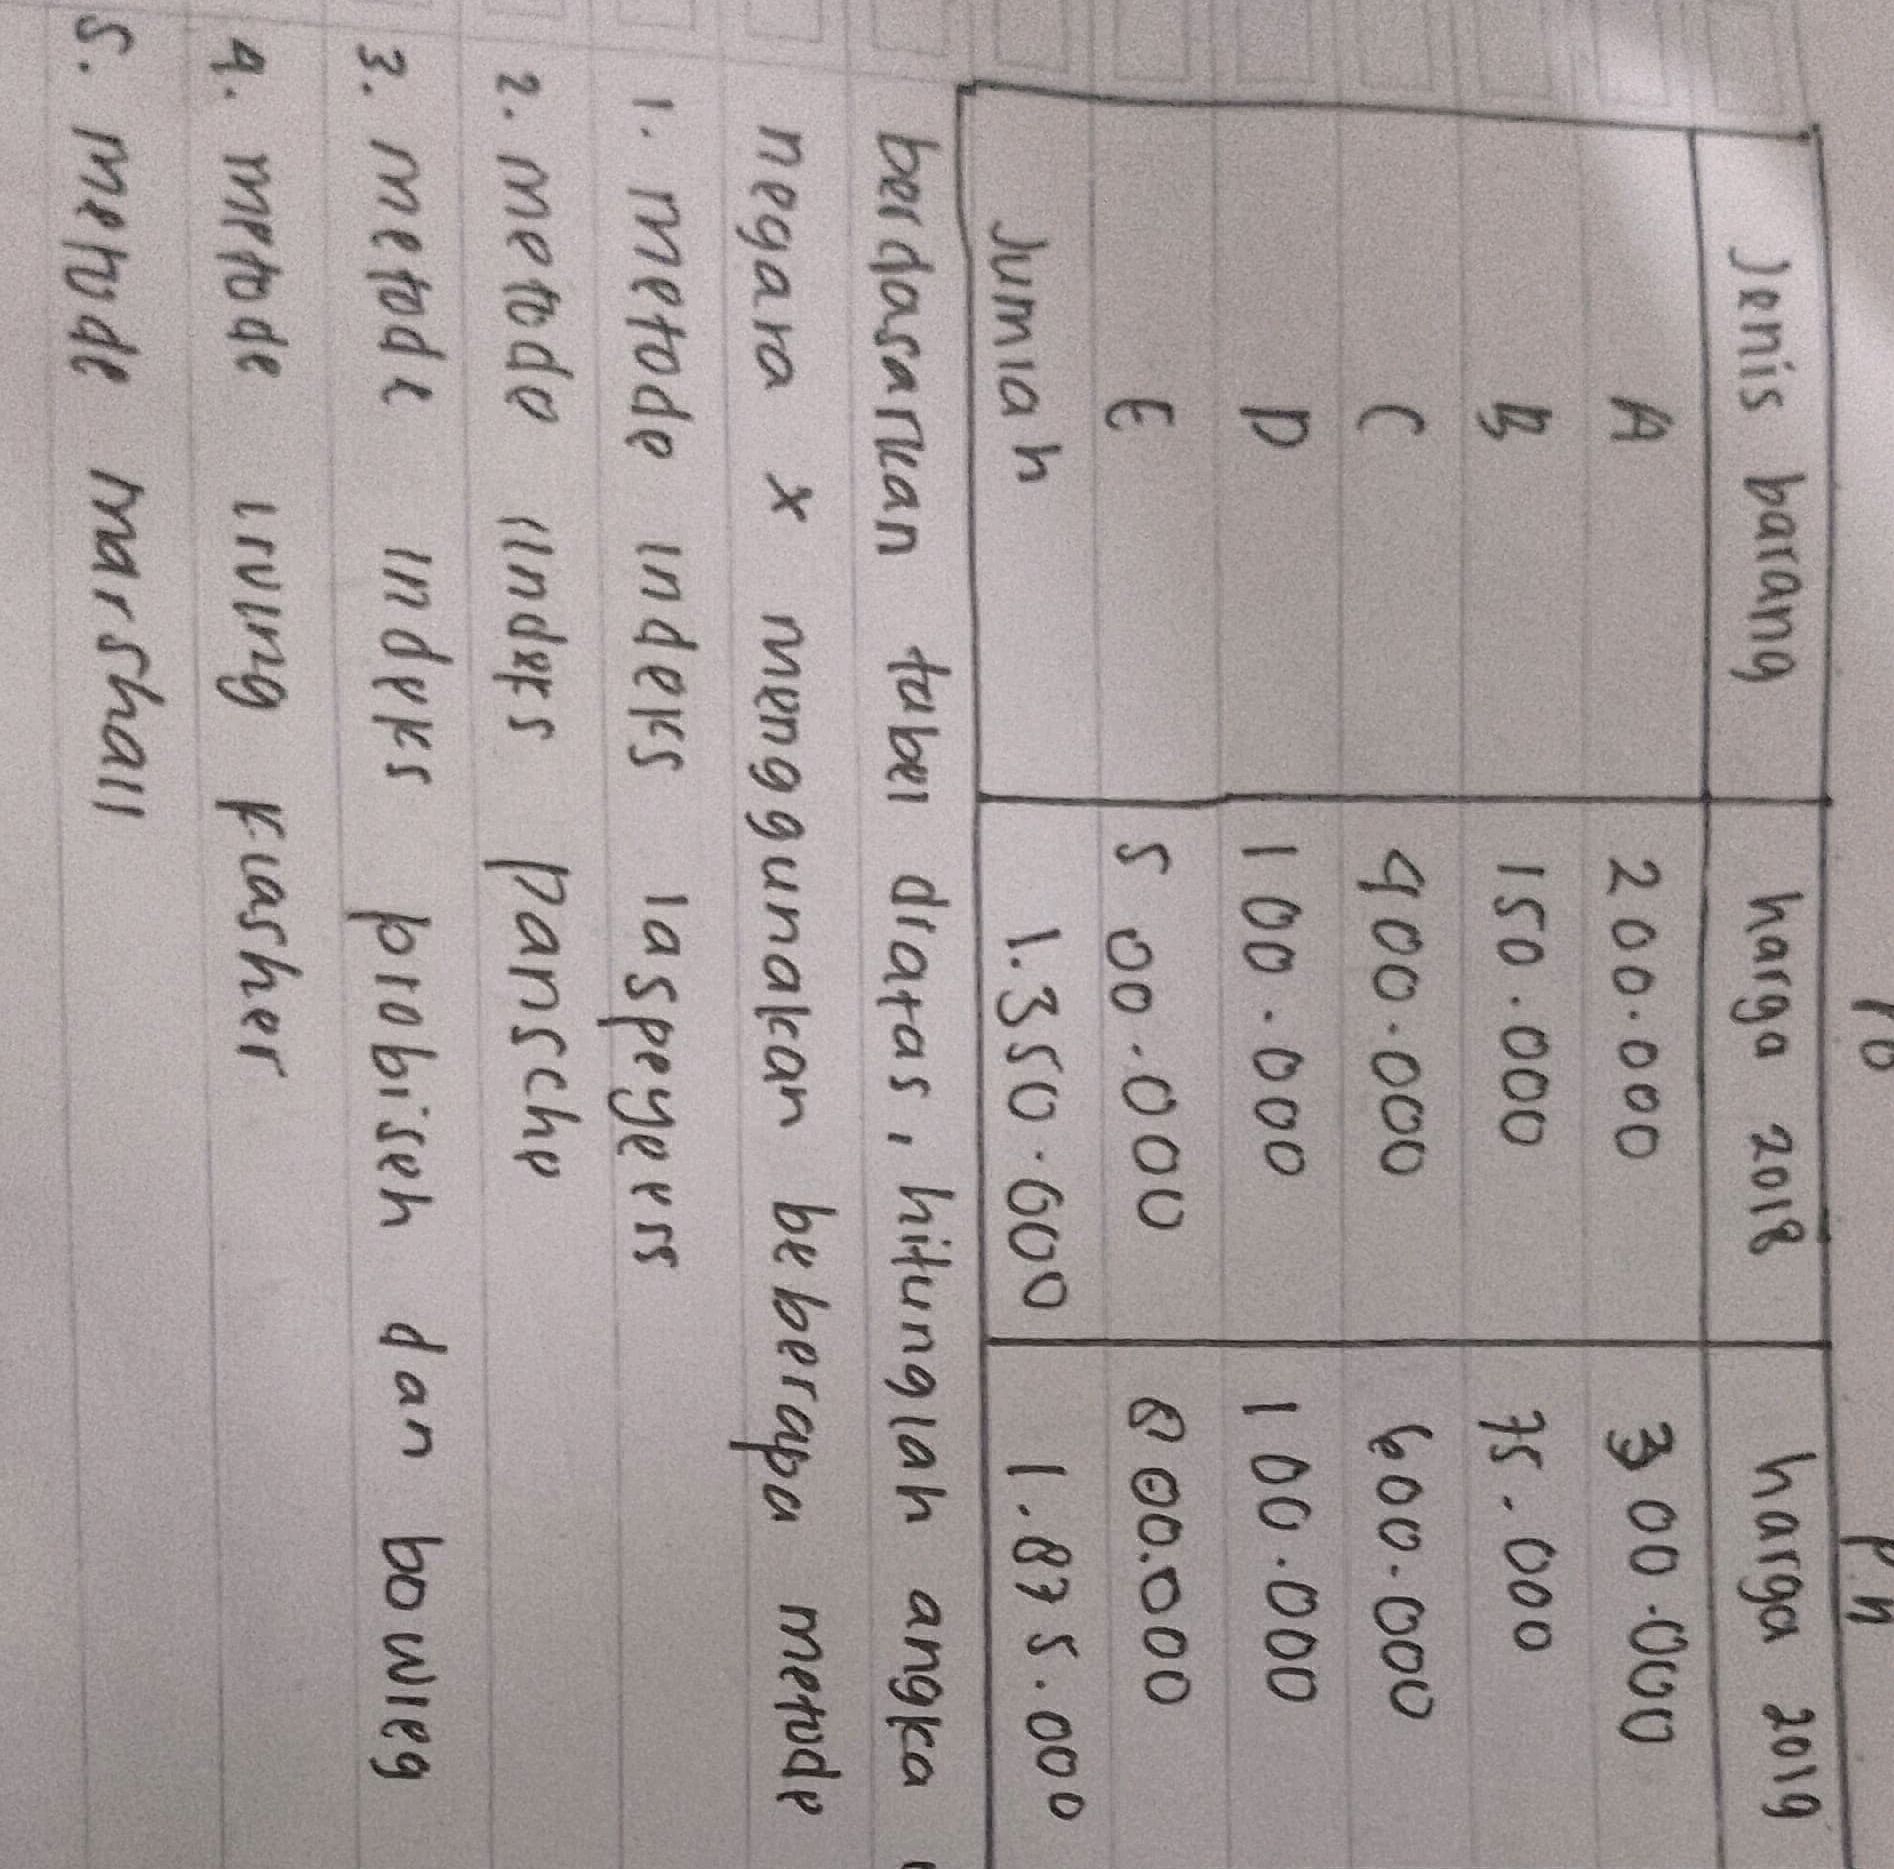 Po Pn
Jenis barang harga 2018 harga 2019
A 200.000 300.000
B 150.000 75.000
C 400.000 600.000
D 100.000 100.000
E 500.000 800.000
Jumlah 1.350.000 1.875.000
berdasarkan tabel diatas, hitunglah angka
negara x menggunakan beberapa metode
1. metode indeks laspeyeres
2. metode iindeks pansche
3. metode iindeks plobiseh dan bowleg
4. metode irving fiasher
5. metode marshall